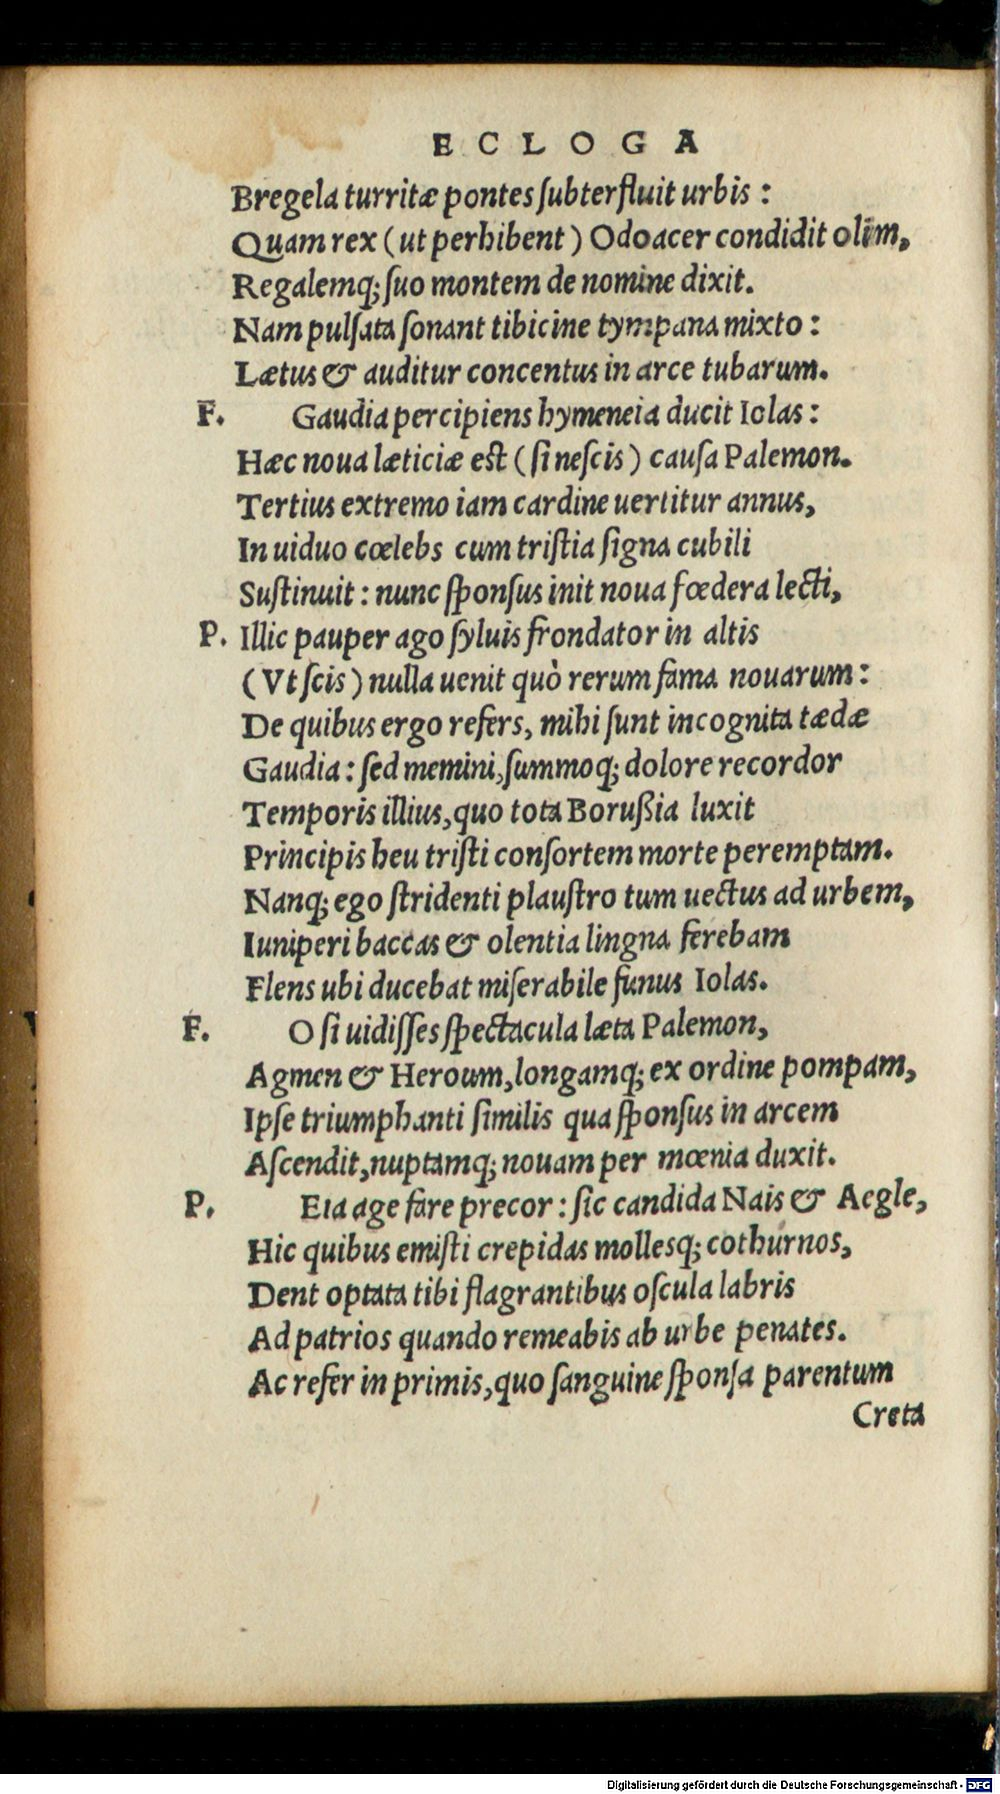 ECLOGA
Bregela turritæ pontes ſubterfluit urbis :
Quam rex ( ut perhibent ) Odoacer condidit olim,
Regalemq; ſuo montem de nomine dixit.
Nam pulſata ſonant tibicine tympana mixto :
Lætus & auditur concentus in arce tubarum.
F. Gaudia percipiens hymeneia ducit Iolas :
Hæc noua læticiæ est ( ſi neſcis ) cauſa Palemon.
Tertius extremo iam cardine uertitur annus,
In uiduo cœlebs cum triſtia ſigna cubili
Suſtinuit : nunc ſponſus init noua fœdera lecti,
P. Illic pauper ago ſyluis frondator in altis
( Vt ſcis ) nulla uenit quò rerum fama nouarum :
De quibus ergo refers, mihi ſunt incognita tædæ
Gaudia : ſed memini, ſummoq; dolore recordor
Temporis illius, quo tota Borußia luxit
Principis heu triſti conſortem morte peremptam.
Nanq; ego ſtridenti plauſtro tum uectus ad urbem,
Iuniperi baccas & olentia lingna ferebam
Flens ubi ducebat miſerabile funus Iolas.
F. O ſi uidiſſes ſpectacula læta Palemon,
Agmen & Heroum, longamq; ex ordine pompam,
Ipſe triumphanti ſimilis qua ſponſus in arcem
Aſcendit, nuptamq; nouam per mœnia duxit.
P. Eia age fare precor : ſic candida Nais & Aegle,
Hic quibus emiſti crepidas mollesq; cothurnos,
Dent optata tibi flagrantibus oſcula labris
Ad patrios quando remeabis ab urbe penates.
Ac refer in primis, quo ſanguine ſponſa parentum
Creta
Digitalisierung gefördert durch die Deutsche Forschungsgemeinschaft - DFG